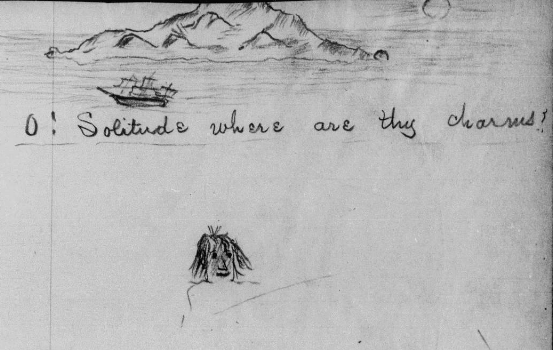 O! Solitude where are thy charms!